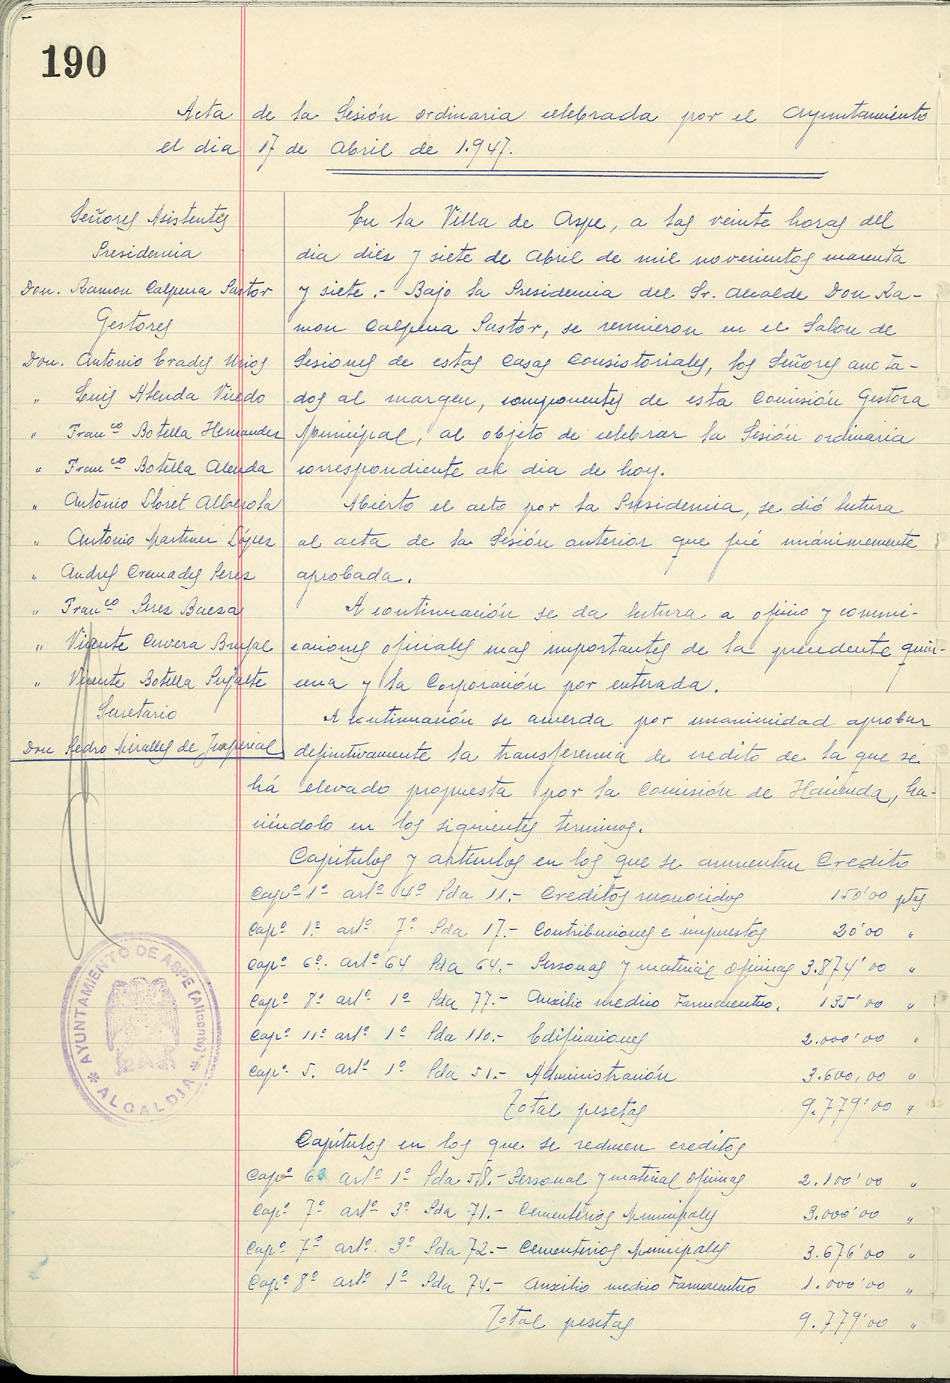 190
Acta de la Sesión ordinaria celebrada por el Ayuntamiento
el dia 17 de Abril de 1.947.
Señores Asistentes
Presidencia
Don. Ramon Calpena Pastor
Gestores
Don. Antonio Erades Urios
" Luis Alenda Viñedo
" Franco Botella Hernandez
" Franco Botella Alenda
" Antonio Lloret Alberola
" Antonio Martinez López
" Andres Cremades Perez
" Franco Perez Baeza
" Vicente Cervera Brufal
" Vicente Botella Pujalte
Secretario
Don Pedro Miralles de Imperial
En la Villa de Aspe, a las veinte horas del
dia diez y siete de Abril de mil novecientos cuarenta
y siete.- Bajo la Presidencia del Sr. Alcalde Don Ra-
mon Calpena Pastor, se reunieron en el Salon de
Sesiones de estas Casas Consistoriales, los Señores anota-
dos al margen, componentes de esta Comisión Gestora
Municipal, al objeto de celebrar la Sesión ordinaria
correspondiente al dia de hoy.
Abierto el acto por la Presidencia, se dió lectura
al acta de la Sesión anterior que fué unánimemente
aprobada.
A continuación se da lectura a oficio y comuni-
caciones oficiales mas importantes de la precedente quin-
cena y la Corporación por enterada.
A continuación se acuerda por unanimidad aprobar
definitivamente la transferencia de credito de la que se
há elevado propuesta por la Comisión de Hacienda, ha-
ciéndolo en los siguientes terminos.
Capitulos y articulos en los que se aumentan Credito
Capº 1º artº 4º Pda 11.- Creditos reconocidos 150'00 ptas
Capº 1º artº 7º Pda 17.- Contribuciones e impuestos 20'00 "
Capº 6º. artº 64 Pda 64.- Personas y material oficinas 3.874'00 "
Capº 8º artº 1º Pda 77.- Auxilio medico Farmaceutico. 135'00 "
Capº 11º artº 1º Pda 110.- Edificaciones 2.000'00 "
Capº 5. artº 1º Pda 51.- Administración 3.600,00 "
Total pesetas 9.779'00 "
Capitulos en los que se reducen creditos
Capº 6º artº 1º Pda 58.- Personal y material oficinas 2.100'00 "
Capº 7º artº 3º Pda 71.- Cementerios Municipales 3.000'00 "
Capº 7º artº. 3º Pda 72.- Cementerios Municipales 3.676'00 "
Capº 8º artº 1º Pda 74.- Auxilio medico Farmaceutico 1.000'00 "
Total pesetas 9.779'00 "
AYUNTAMIENTO DE ASPE (Alicante)
* ALCALDIA *